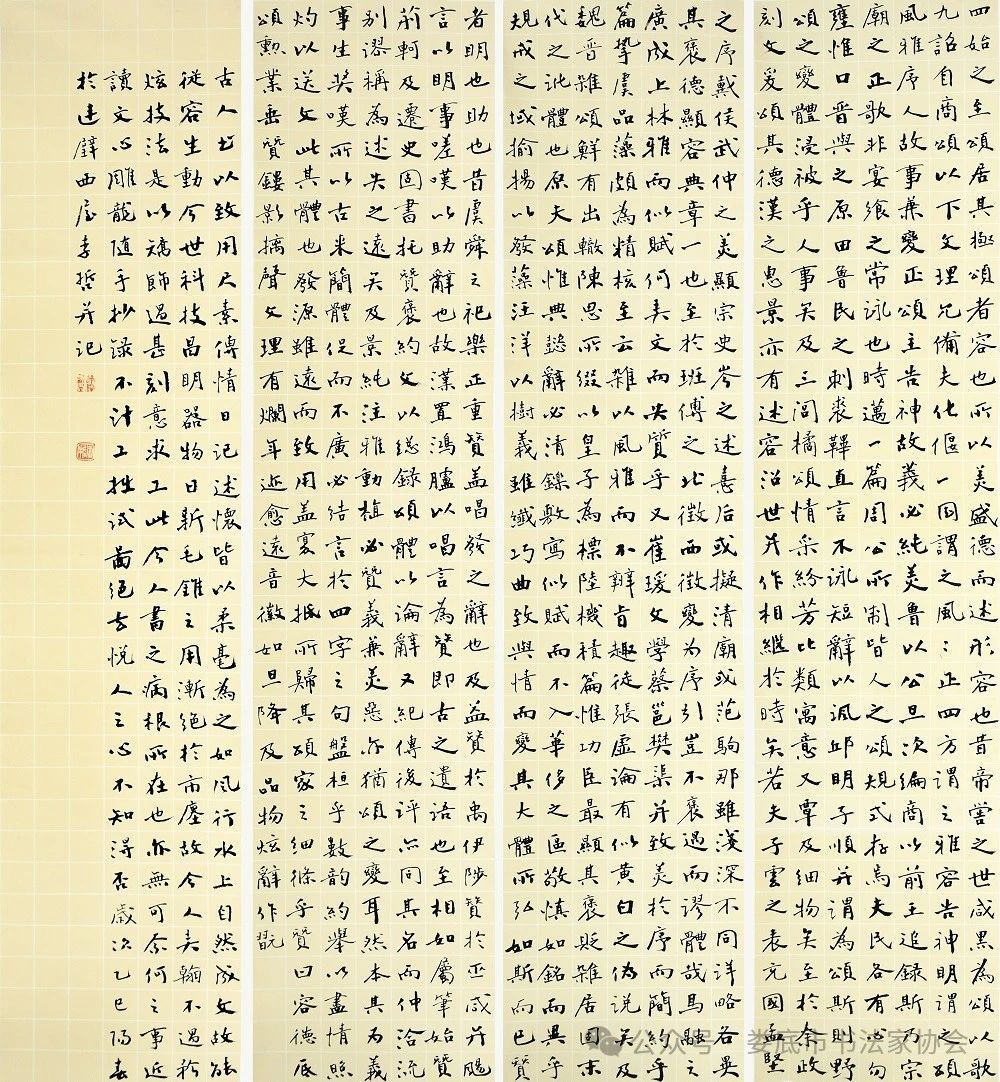 四始之至頌居其極頌者容也所以美盛德而述形容也帝嚳之世咸黑為頌以歌
九韶自商頌以下文理允備夫化偃一囯謂之風〻正四方謂之雅容告神明謂之頌
風雅序人故事兼變正頌主告神故義必純美魯以公旦次編商以前王追錄斯乃宗
廟之正歌非宴飨之常詠也時邁一篇周公所制皆人之頌規式存焉夫民各有心勿
壅惟口晉與之原田魯民之刺裘鞸直言不詠短辭以諷邱明子順并謂為頌斯則野
頌之變體浸被乎人事矣及三閭橘頌情采紛芳比類寓意又覃及細物矣至於秦政
刻文爰頌其德漢之惠景亦有述容沿世并作相繼於時矣若夫子雲之表充國孟堅
之序戴侯武仲之美顯宗史岑之述熹后或擬清廟或范駉那雖淺深不同詳略各異
其褒德顯容典章一也至於班傅之北徵西徵變為序引豈不褒過而謬體哉馬融之
廣成上林雅而似賦何弄文而失質乎又崔瑗文學蔡邕樊渠并致美於序而簡約乎
篇摯虞品藻頗為精核至云雜以風雅而不辨旨趣徒張虛論有似黃白之偽說矣及
魏晉雜頌鮮有出轍陳思所綴以皇子為標陸機積篇惟功臣最顯其褒貶雜居固末
代之訛體也原夫頌惟典懿辭必清鑠敷寫似賦而不入華侈之區敬慎如銘而異乎
規戒之域揄揚以發藻汪洋以樹義雖纖巧曲致與情而變其大體所弘如斯而已贊
者明也助也昔虞舜之祀樂正重贊蓋唱發之辭也及益贊於禹伊陟贊於巫咸并颺
言以明事嗟嘆以助辭也故漢置鴻臚以唱言為贊即古之遺語也至相如屬筆始贊
荊軻及遷史固書托贊褒約文以總錄頌體以論辭又紀傳後評亦同其名而仲洽流
別謬稱為述失之遠矣及景純注雅動植必贊義兼美惡亦猶頌之變耳然本其為義
事生獎嘆所以古來簡體促而不廣必結言於四字之句盤桓乎數韵約舉以盡情照
灼以送文此其體也發源雖遠而致用蓋寡大抵所歸其頌家之細條乎贊曰容德底
頌勳業垂贊鏤影摛聲文理有爛年迹愈遠音徽如旦降及品物炫辭作翫
古人書以致用尺素傳情日記述懷皆以柔毫為之如風行水上自然成文故能
從容生動今世科技昌明器物日新毛錐之用漸絕於市廛故今人弄翰不過矜
炫技法是以矯飾過甚刻意求工此今人書之病根所在也亦無可奈何之事近
讀文心雕龍隨手抄錄不計工拙試圖絕去悅人之心不知得否歲次乙巳陽春
於连璧西屋李哲并記
公众号·娄底市书法家协会